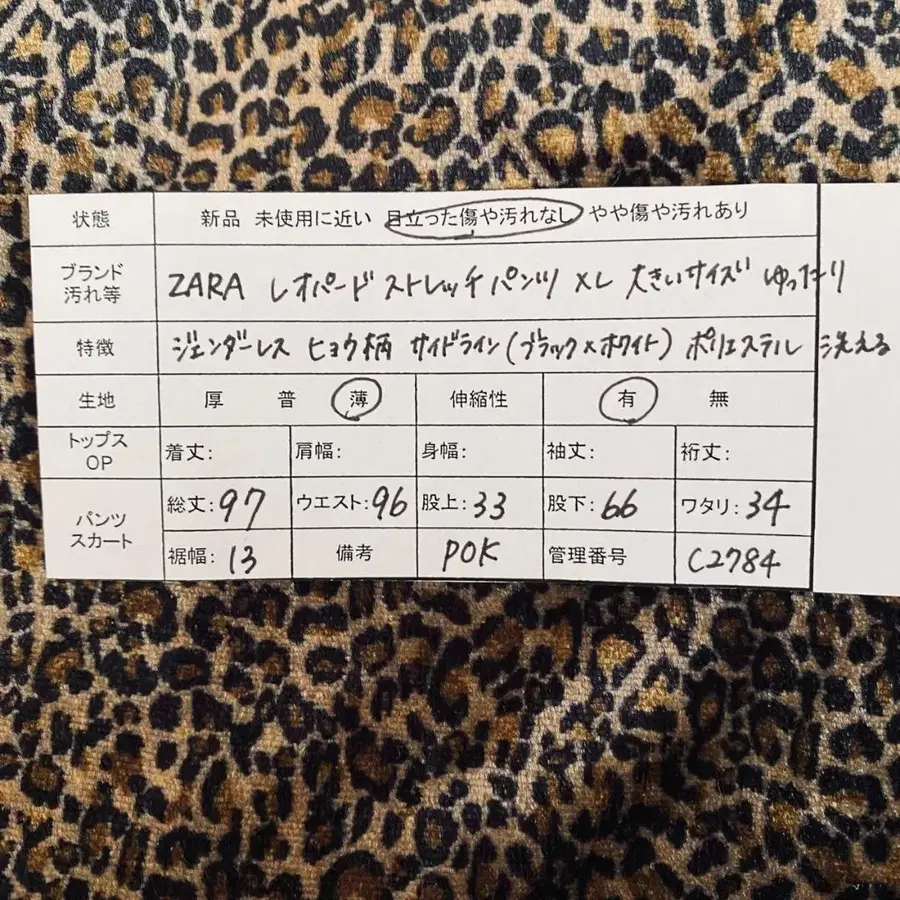 状態 新品 未使用に近い 目立った傷や汚れなし やや傷や汚れあり
ブランド
汚れ等
ZARA レオパード ストレッチパンツ XL 大きいサイズ ゆったり
特徴 ジェンダーレス ヒョウ柄 サイドライン(ブラック×ホワイト) ポリエステル 洗える
生地 厚 普 薄 伸縮性 有 無
トップス
OP
着丈: 肩幅: 身幅: 袖丈: 裄丈:
パンツ
スカート
総丈:97 ウエスト:96 股上:33 股下:66 ワタリ:34
裾幅:13 備考 POK 管理番号 C2784